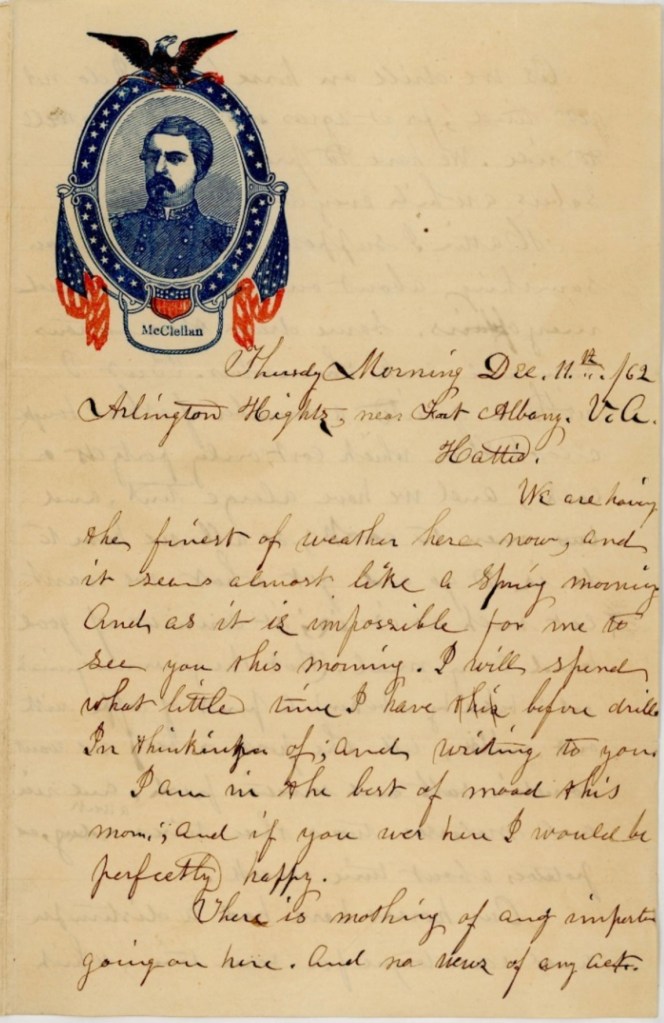 McClellan
Thursdy Morning Dec. 11th. /62
Arlington Hights, near Fort Albany. V.A.
Hattie.
We are having
the finest of weather here now, and
it seems almost like a Spring morning
And as it is impossible for me to
see you this morning. I will spend
what little time I have this before drill
In thinking of; and writing to you.
I am in the best of mood this
morn.; and if you wer here I would be
perfectly happy.
There is nothing of any import
going on here. And no news of any act.